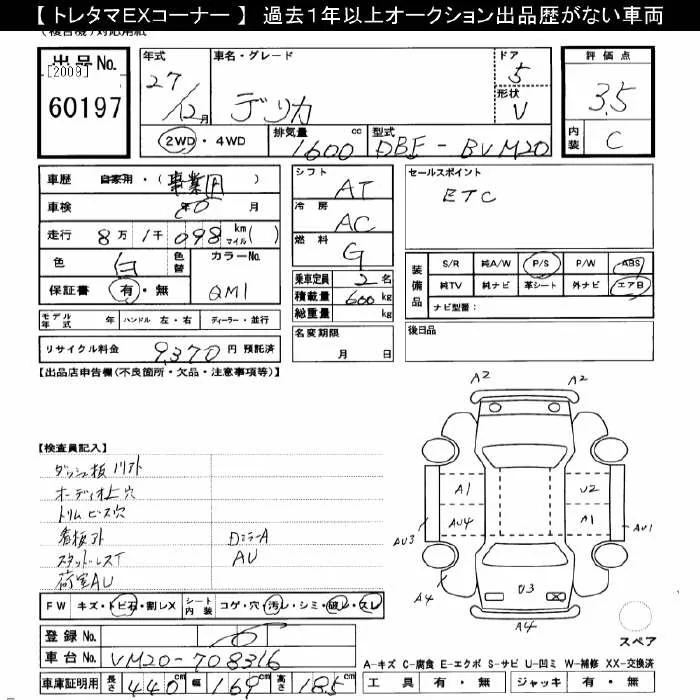 【 トレタマEXコーナー 】 過去１年以上オークション出品歴がない車両
出品No.
[2009]
60197
年式
27
12月
車名・グレード
デリカ
ドア
5
形状
V
評価点
3.5
内装
C
2WD・4WD
排気量
1600 cc
型式
DBF - BVM20
車歴 自家用・( 事業用 )
車検 年 月
走行 8万 1千 098 km マイル ( )
色 白 色替
カラーNo.
QM1
保証書 有・無
シフト
AT
冷房
AC
燃料
G
乗車定員 2名
積載量 600 kg
総重量 kg
セールスポイント
ETC
装備品
S/R 純A/W P/S P/W ABS
純TV 純ナビ 革シート 外ナビ エアB
ナビ型番：
モデル年式 年 ハンドル 左・右 ディーラー・並行
リサイクル料金 9,370 円 預託済
名変期限
月 日
後日品
【出品店申告欄(不良箇所・欠品・注意事項等)】
【検査員記入】
ダッシュ板
オーディオ上穴
トリムビス穴
看板アト DミラーA
スタッドレスT AU
荷室AU
A2
A2
A1
U2
AU3
AU4
A1
AU1
A4
U3
A4
A4
スペア
FW キズ・トビ石・割レX
シート内装 コゲ・穴・汚レ・シミ・破レ・スレ
登録No.
車台No. VM20-708316
車庫証明用 長さ 440cm 幅 169cm 高さ 185cm
A-キズ C-腐食 E-エクボ S-サビ U-凹ミ W-補修 XX-交換済
工具 有・無 ジャッキ 有・無